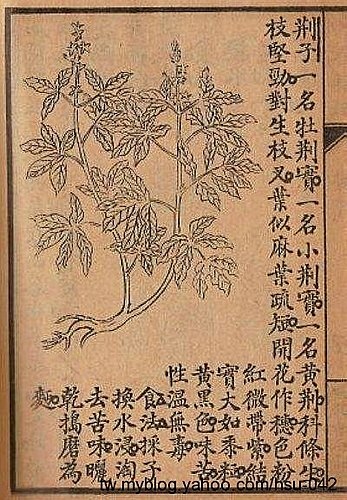 荆子一名牡荆實一名小荆實一名黄荆科條生
枝堅勁對生枝叉葉似麻葉疏短開花作穗色粉
紅微帶紫結
實大如黍粒
黄黑色味苦
性温無毒
食法採子
換水浸淘
去苦味曬
乾搗磨為
麵
tw.myblog.yahoo.com/hsu-042